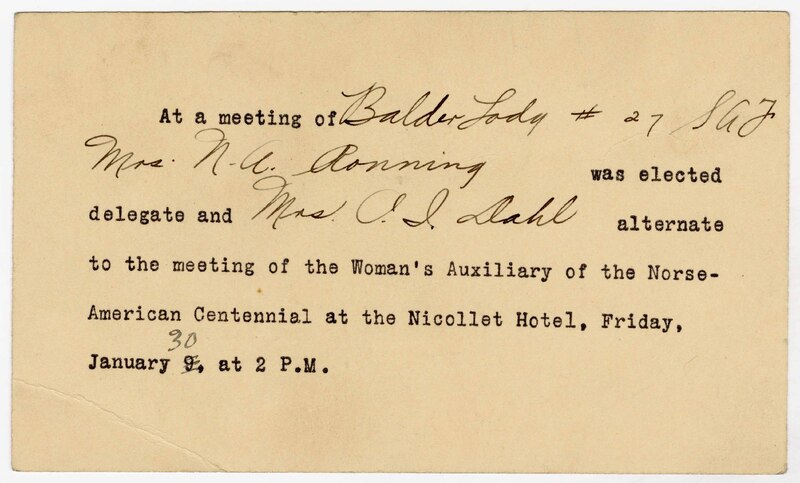 At a meeting of Balder Lodg # 27 SAF
Mrs. N. A. Ronning was elected
delegate and Mrs. O. I. Dahl alternate
to the meeting of the Woman's Auxiliary of the Norse-
American Centennial at the Nicollet Hotel, Friday,
30
January 9, at 2 P.M.